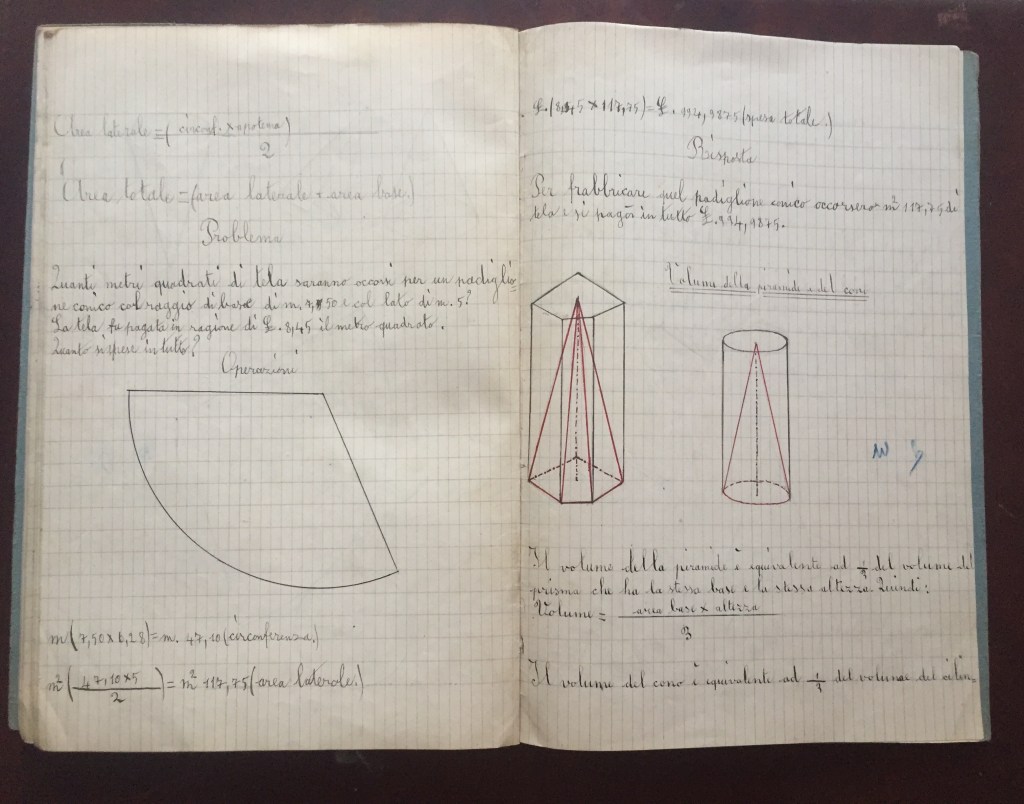 Area laterale = (circonf. x apotema)
2
Area totale = (area laterale + area base.)
Problema
Quanti metri quadrati di tela saranno occorsi per un padiglio=
ne conico col raggio di base di m. 7,50 e col lato di m. 5?
La tela fu pagata in ragione di £. 8,45 il metro quadrato.
Quanto si spese in tutto?
Operazioni
m (7,50 x 6,28) = m. 47,10 (circonferenza.)
m² (47,10 x 5
2) = m² 117,75 (area laterale.)
£. (8,45 x 117,75) = £. 994,9875 (spesa totale.)
Risposta
Per frabbricare quel padiglione conico occorsero m² 117,75 di
tela e si pagò in tutto £. 994,9875.
Volume della piramide e del cono
Il volume della piramide è equivalente ad 1/3 del volume del
prisma che ha la stessa base e la stessa altezza. Quindi:
Volume = area base x altezza
3
Il volume del cono è equivalente ad 1/3 del volume del cilin=